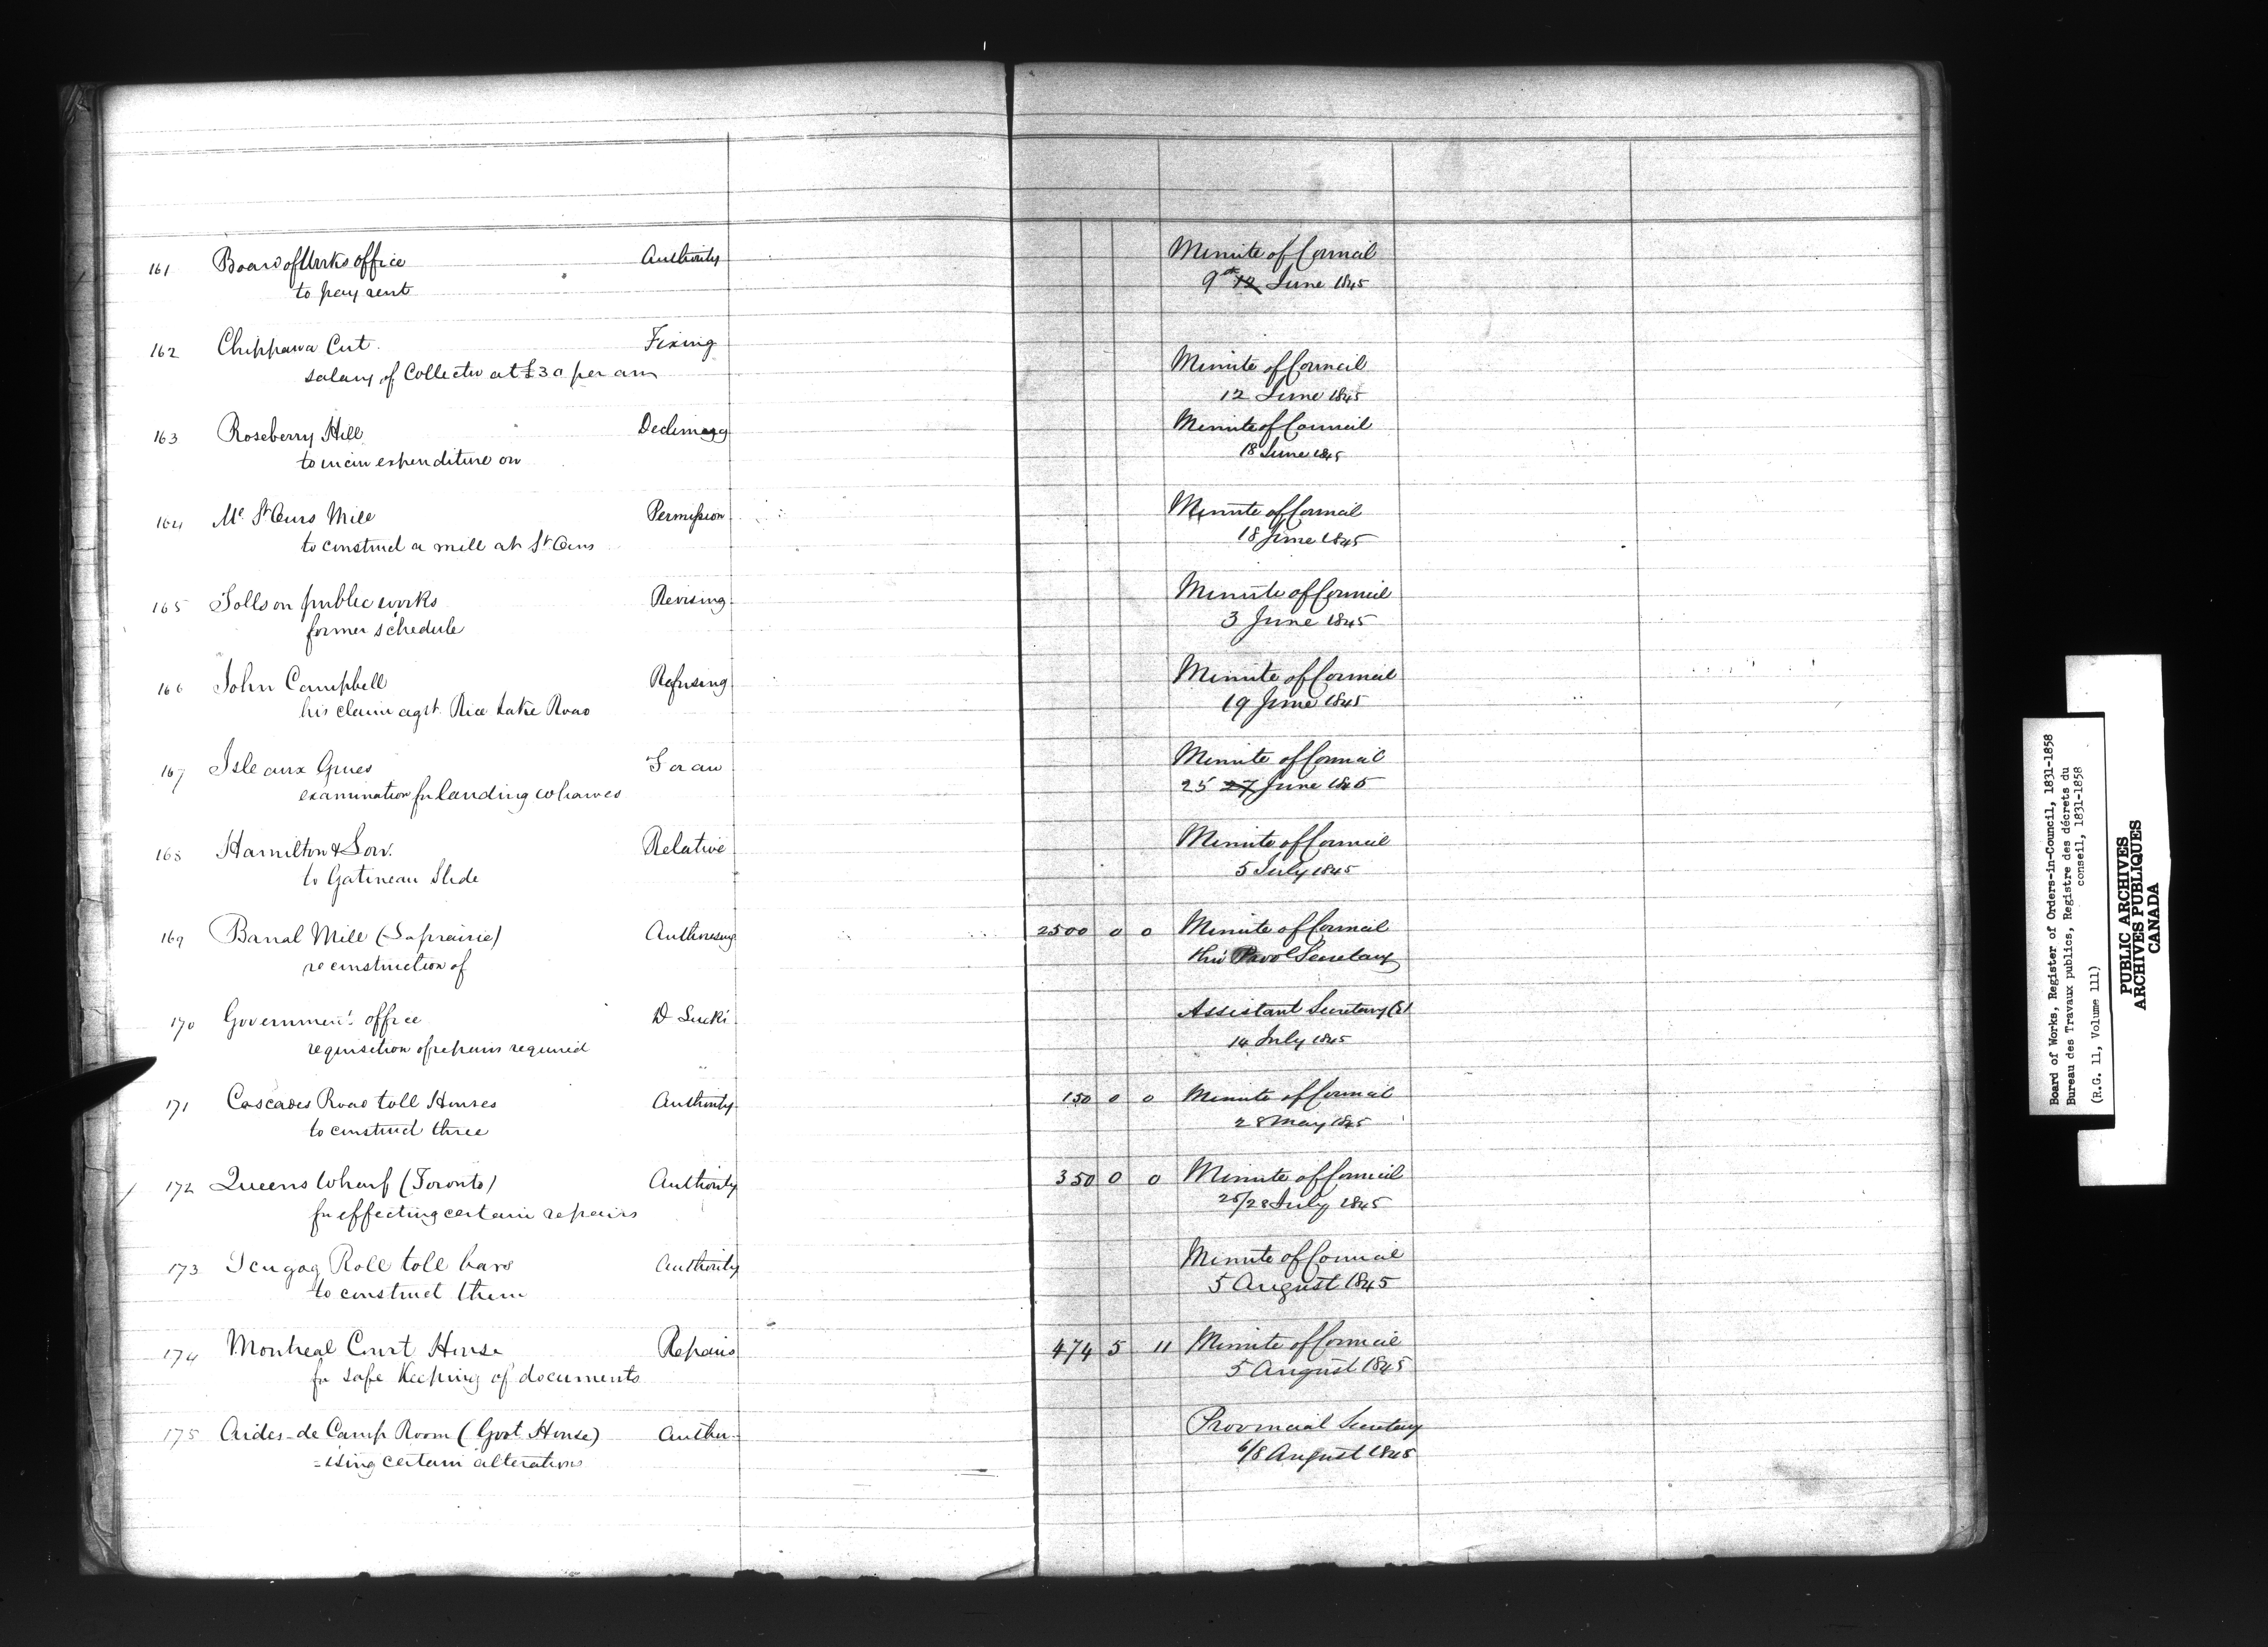 161 Board of Works office Authority Minute of Council
to pay rent 9th 12 June 1845
162 Chippawa Cut. Fixing
salary of Collector at £30 per ann Minute of Council
12 June 1845
163 Roseberry Hill Declining Minute of Council
to incur expenditure on 18 June 1845
164 St Ours Mill Permission Minute of Council
to construct a mill at St Ours 18 June 1845
165 Tolls on public works Revising Minute of Council
former schedule 3 June 1845
166 John Campbell Refusing Minute of Council
his claim agst. Rice Lake Road 19 June 1845
167 Isle aux Grues for an Minute of Council
examination for landing wharves 25 27 June 1845
168 Hamilton & Low. Relative Minute of Council
to Gatineau Slide 5 July 1845
169 Banal Mill (Laprairie) Authorising 2500 0 0 Minute of Council
reconstruction of thro' Provl Secretary
170 Government office Assistant Secretary
requisition of repairs required 14 July 1845
171 Cascades Road toll Houses Authority 150 0 0 Minute of Council
to construct three 28 May 1845
172 Queens Wharf (Toronto) Authority 350 0 0 Minute of Council
for effecting certain repairs 25/28 July 1845
173 Scugog Roll toll bars Authority Minute of Council
to construct them 5 August 1845
174 Montreal Court House Repairs 474 5 11 Minute of Council
for safe Keeping of documents 5 August 1845
175 Aides-de Camp Room (Govt. House) Author- Provincial Secretary
-ising certain alterations 6/8 August 1845
Board of Works, Register of Orders-in-Council, 1831-1858
Bureau des Travaux publics, Registre des décrets du
conseil, 1831-1858
(R.G. 11, Volume 111)
PUBLIC ARCHIVES
ARCHIVES PUBLIQUES
CANADA